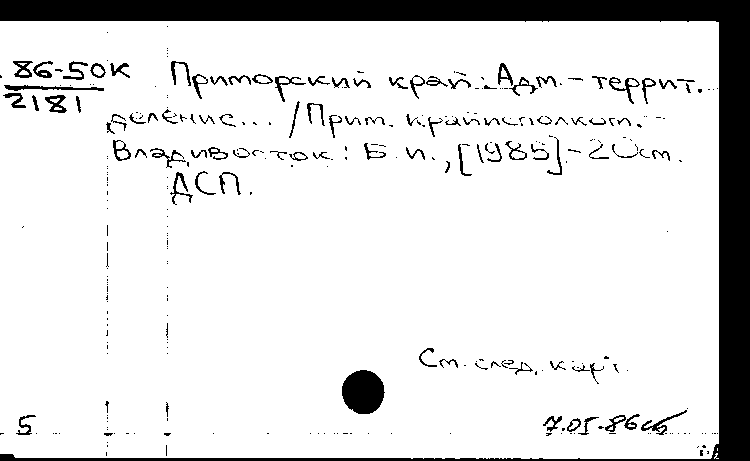 86-50К
2181
Приморский край: Адм.-террит.
деление... / Прим. крайисполком. -
Владивосток: Б. и., [1985] - 20 см.
ДСП.
См. след. карт.
5
7.05.86